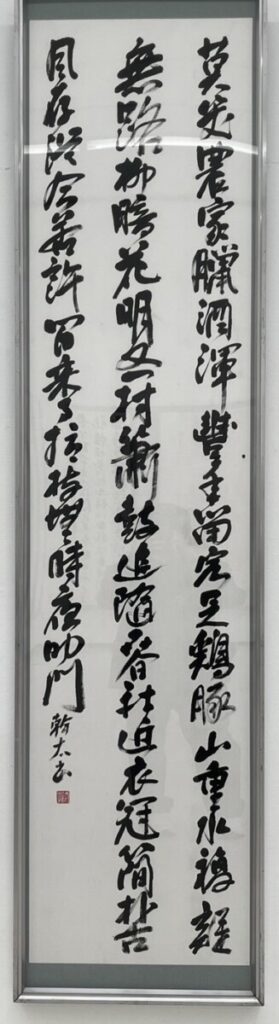 莫笑農家臘酒渾豐年留客足鷄豚山重水複疑
無路柳暗花明又一村簫鼓追隨春社近衣冠簡朴古
風存從今若許閒乘月拄杖無時夜叩門
太書